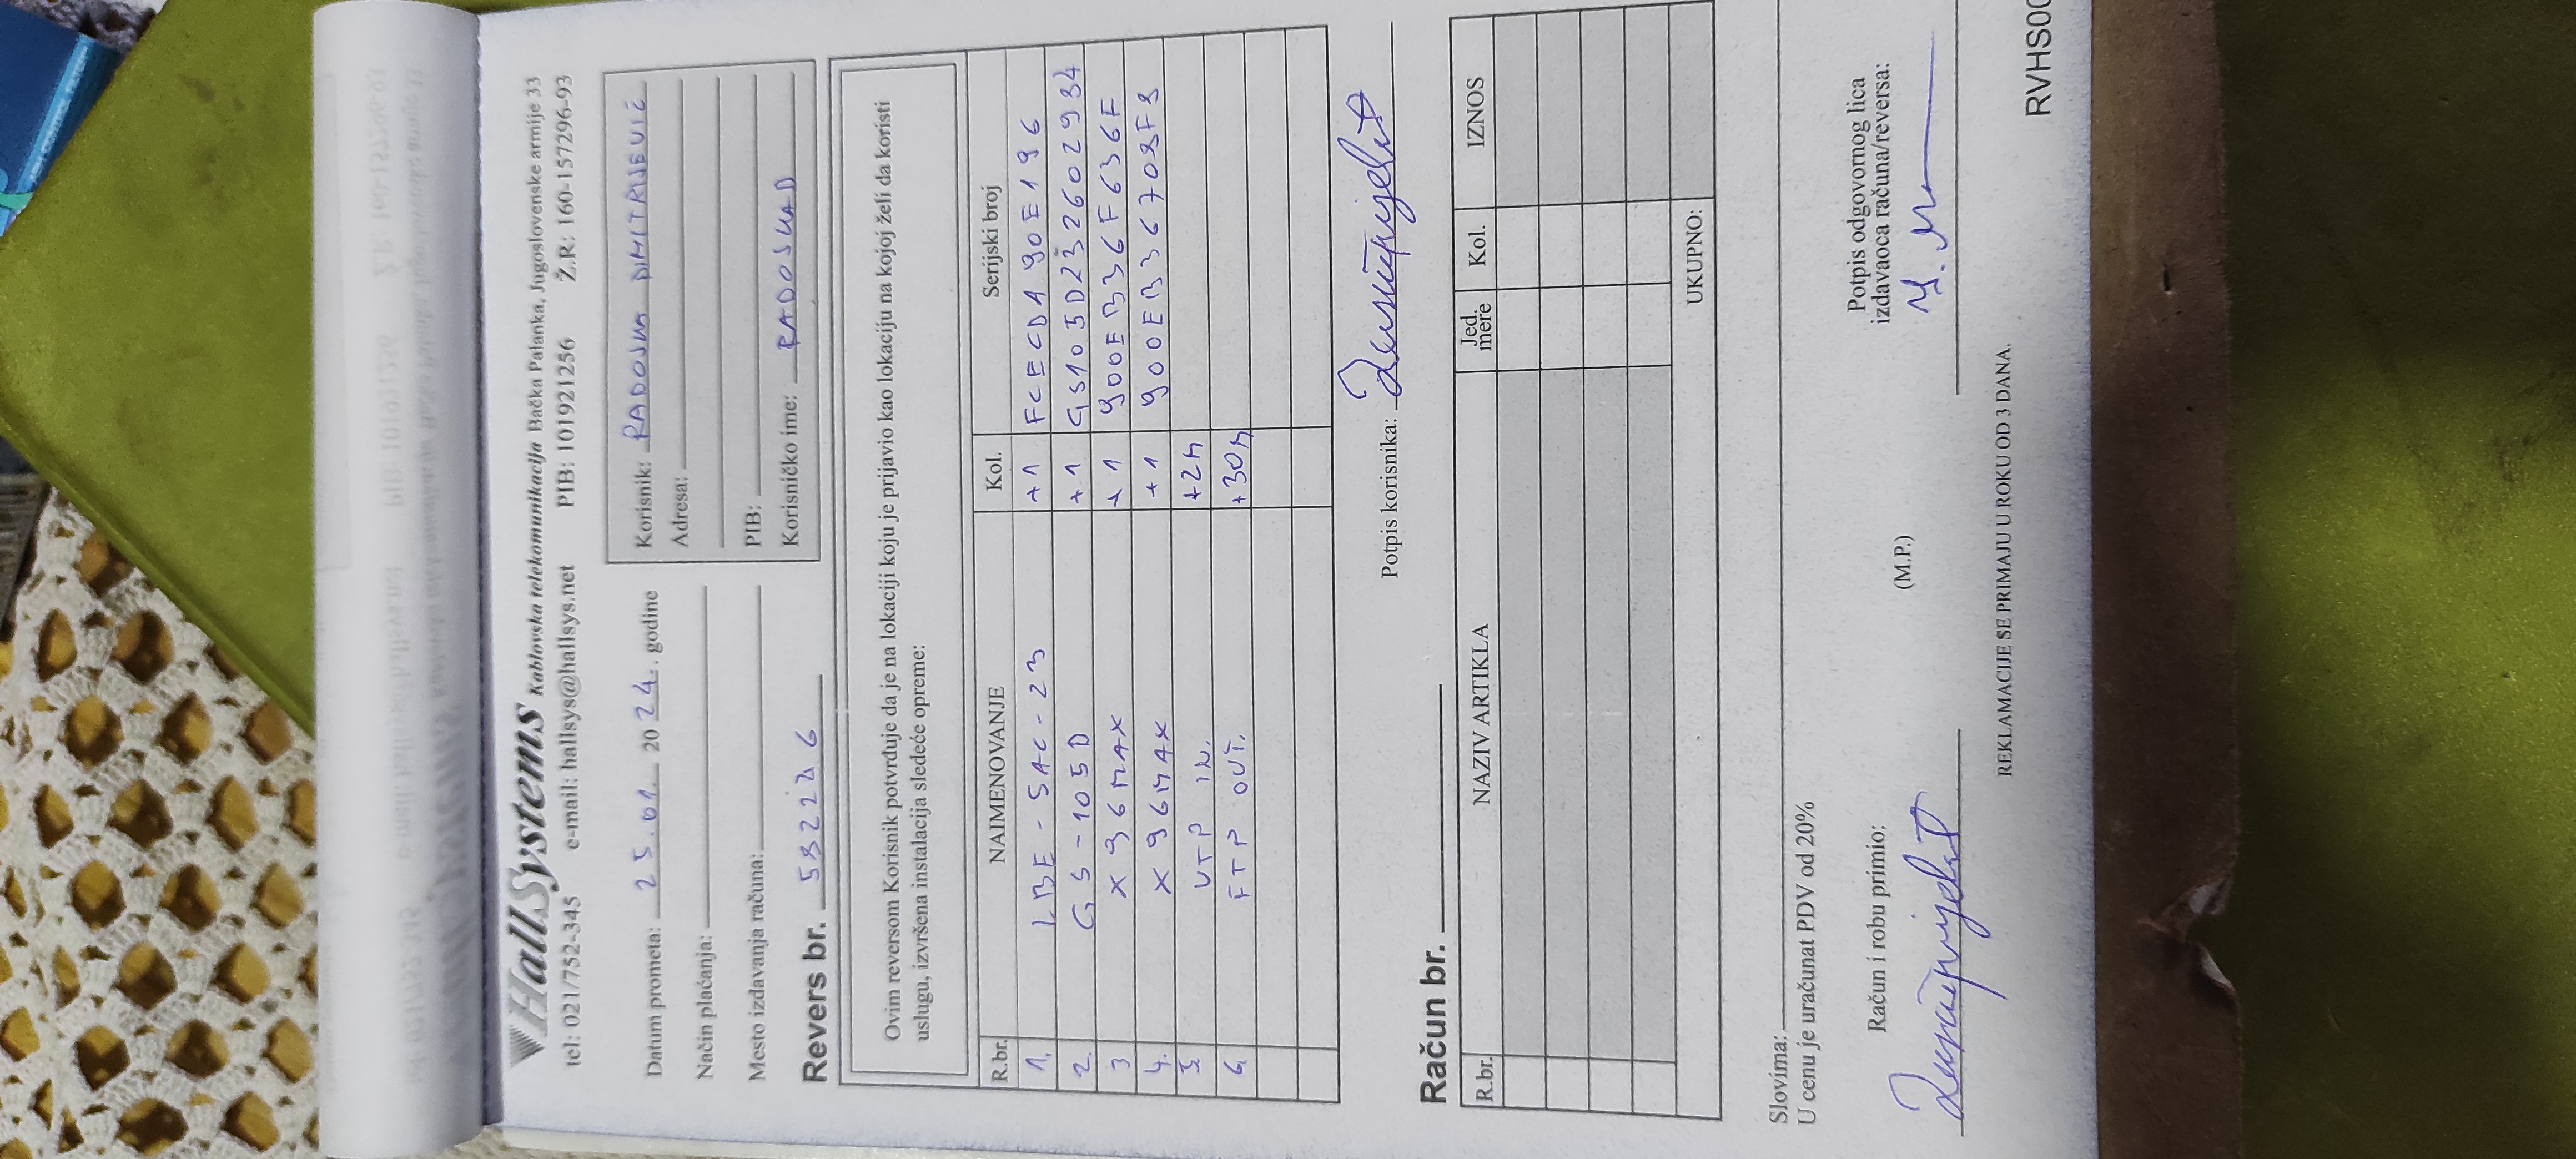 HallSystems Kablovska telekomunikacija Bačka Palanka, Jugoslovenske armije 33
tel: 021/752-345 e-mail: hallsys@hallsys.net PIB: 101921256 Ž.R: 160-157296-93
Datum prometa: 25.01. 2024. godine
Način plaćanja:
Mesto izdavanja računa:
Korisnik: RADOJKA DIMITRIJEVIĆ
Adresa:
PIB:
Korisničko ime: RADOJKAD
Revers br. 582226
Ovim reversom Korisnik potvrđuje da je na lokaciji koju je prijavio kao lokaciju na kojoj želi da koristi
uslugu, izvršena instalacija sledeće opreme:
R.br. NAIMENOVANJE Kol. Serijski broj
1. LBE-5AC-23 +1 FCECDA90E196
2. GS-105D +1 GS105D2326029 34
3 X96MAX +1 900EB36F636F
4. X96MAX +1
5. UTP IN. +2M
6. FTP OUT. +30M
Potpis korisnika:
Račun br.
R.br. NAZIV ARTIKLA Jed. mere Kol. IZNOS
UKUPNO:
Slovima:
U cenu je uračunat PDV od 20%
Račun i robu primio:
(M.P.)
Potpis odgovornog lica
izdavaoca računa/reversa:
REKLAMACIJE SE PRIMAJU U ROKU OD 3 DANA.
RVHS00